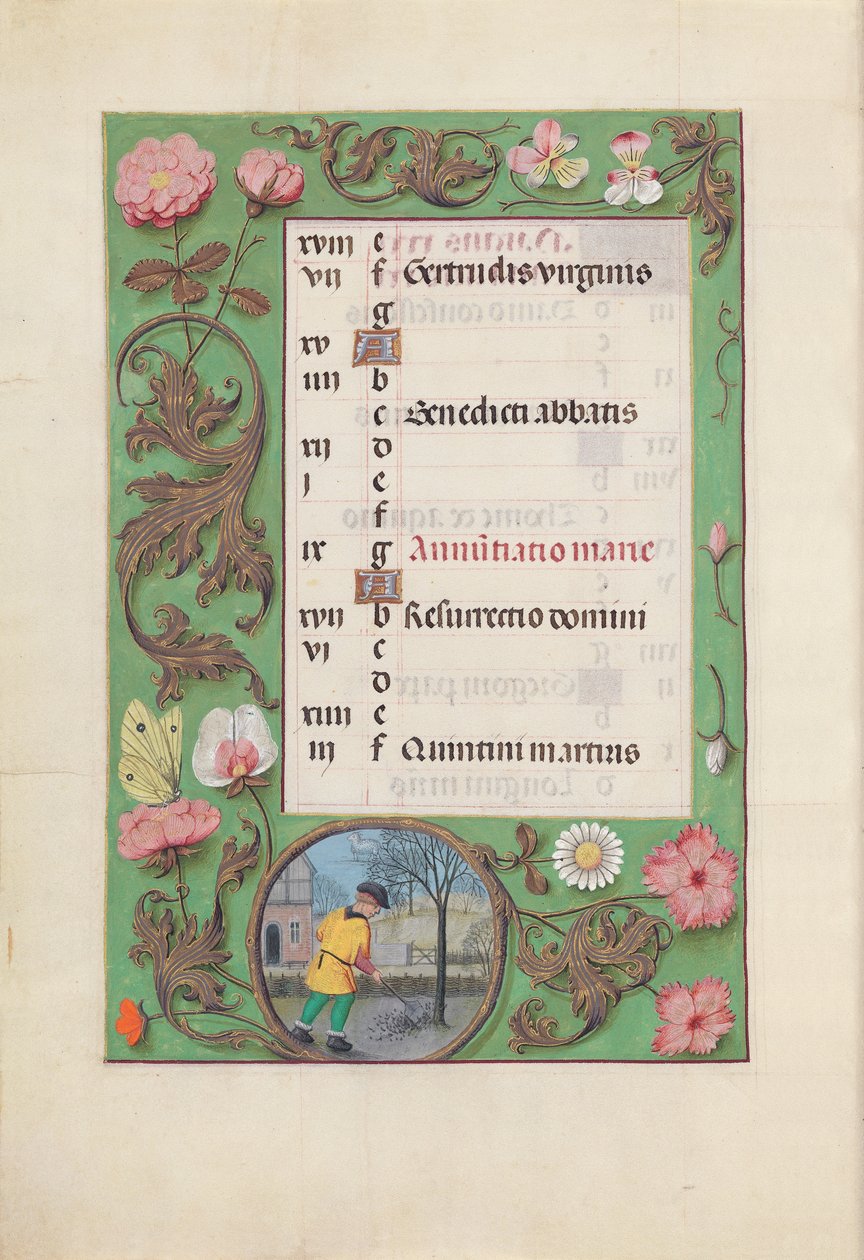 xviij e
vij f Gertrudis virginis
g
xv A
iiij b
c Benedicti abbatis
xij d
j e
f
ix g Annũtiatio marie
A
xvij b Resurrectio domini
vj c
d
xiiij e
iij f Quintini martiris